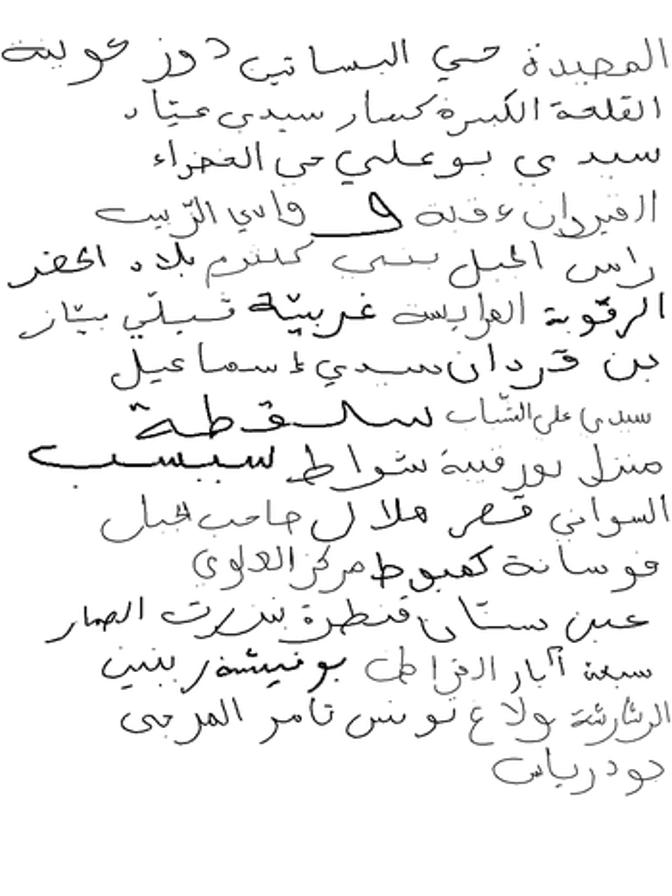 المصيدة حي البساتين دوز عوينة
القلعة الكبيرة كسار سيدي عيّاد
سيدي بوعلي حي الخضراء
القيروان عقبة و وادي الزّيت
راس الجبل بني كلثوم بلاد الحضر
الرقوبة العرايسة غربيّة قبلّي بيّاز
بن قردان سيدي إسماعيل
سيدي علي الشّباب سلقطة
منزل بورقيبة شواط سبسب
السواني قصر هلال صاحب الجبل
فوسانة كمبوط مركز العلوي
عين ستّان قنطرة بنزرت الصمار
سبعة آبار القراطي بوفيشة زبنين
الرثارثة بولاغ تونس تامر المرجى
بودرياس